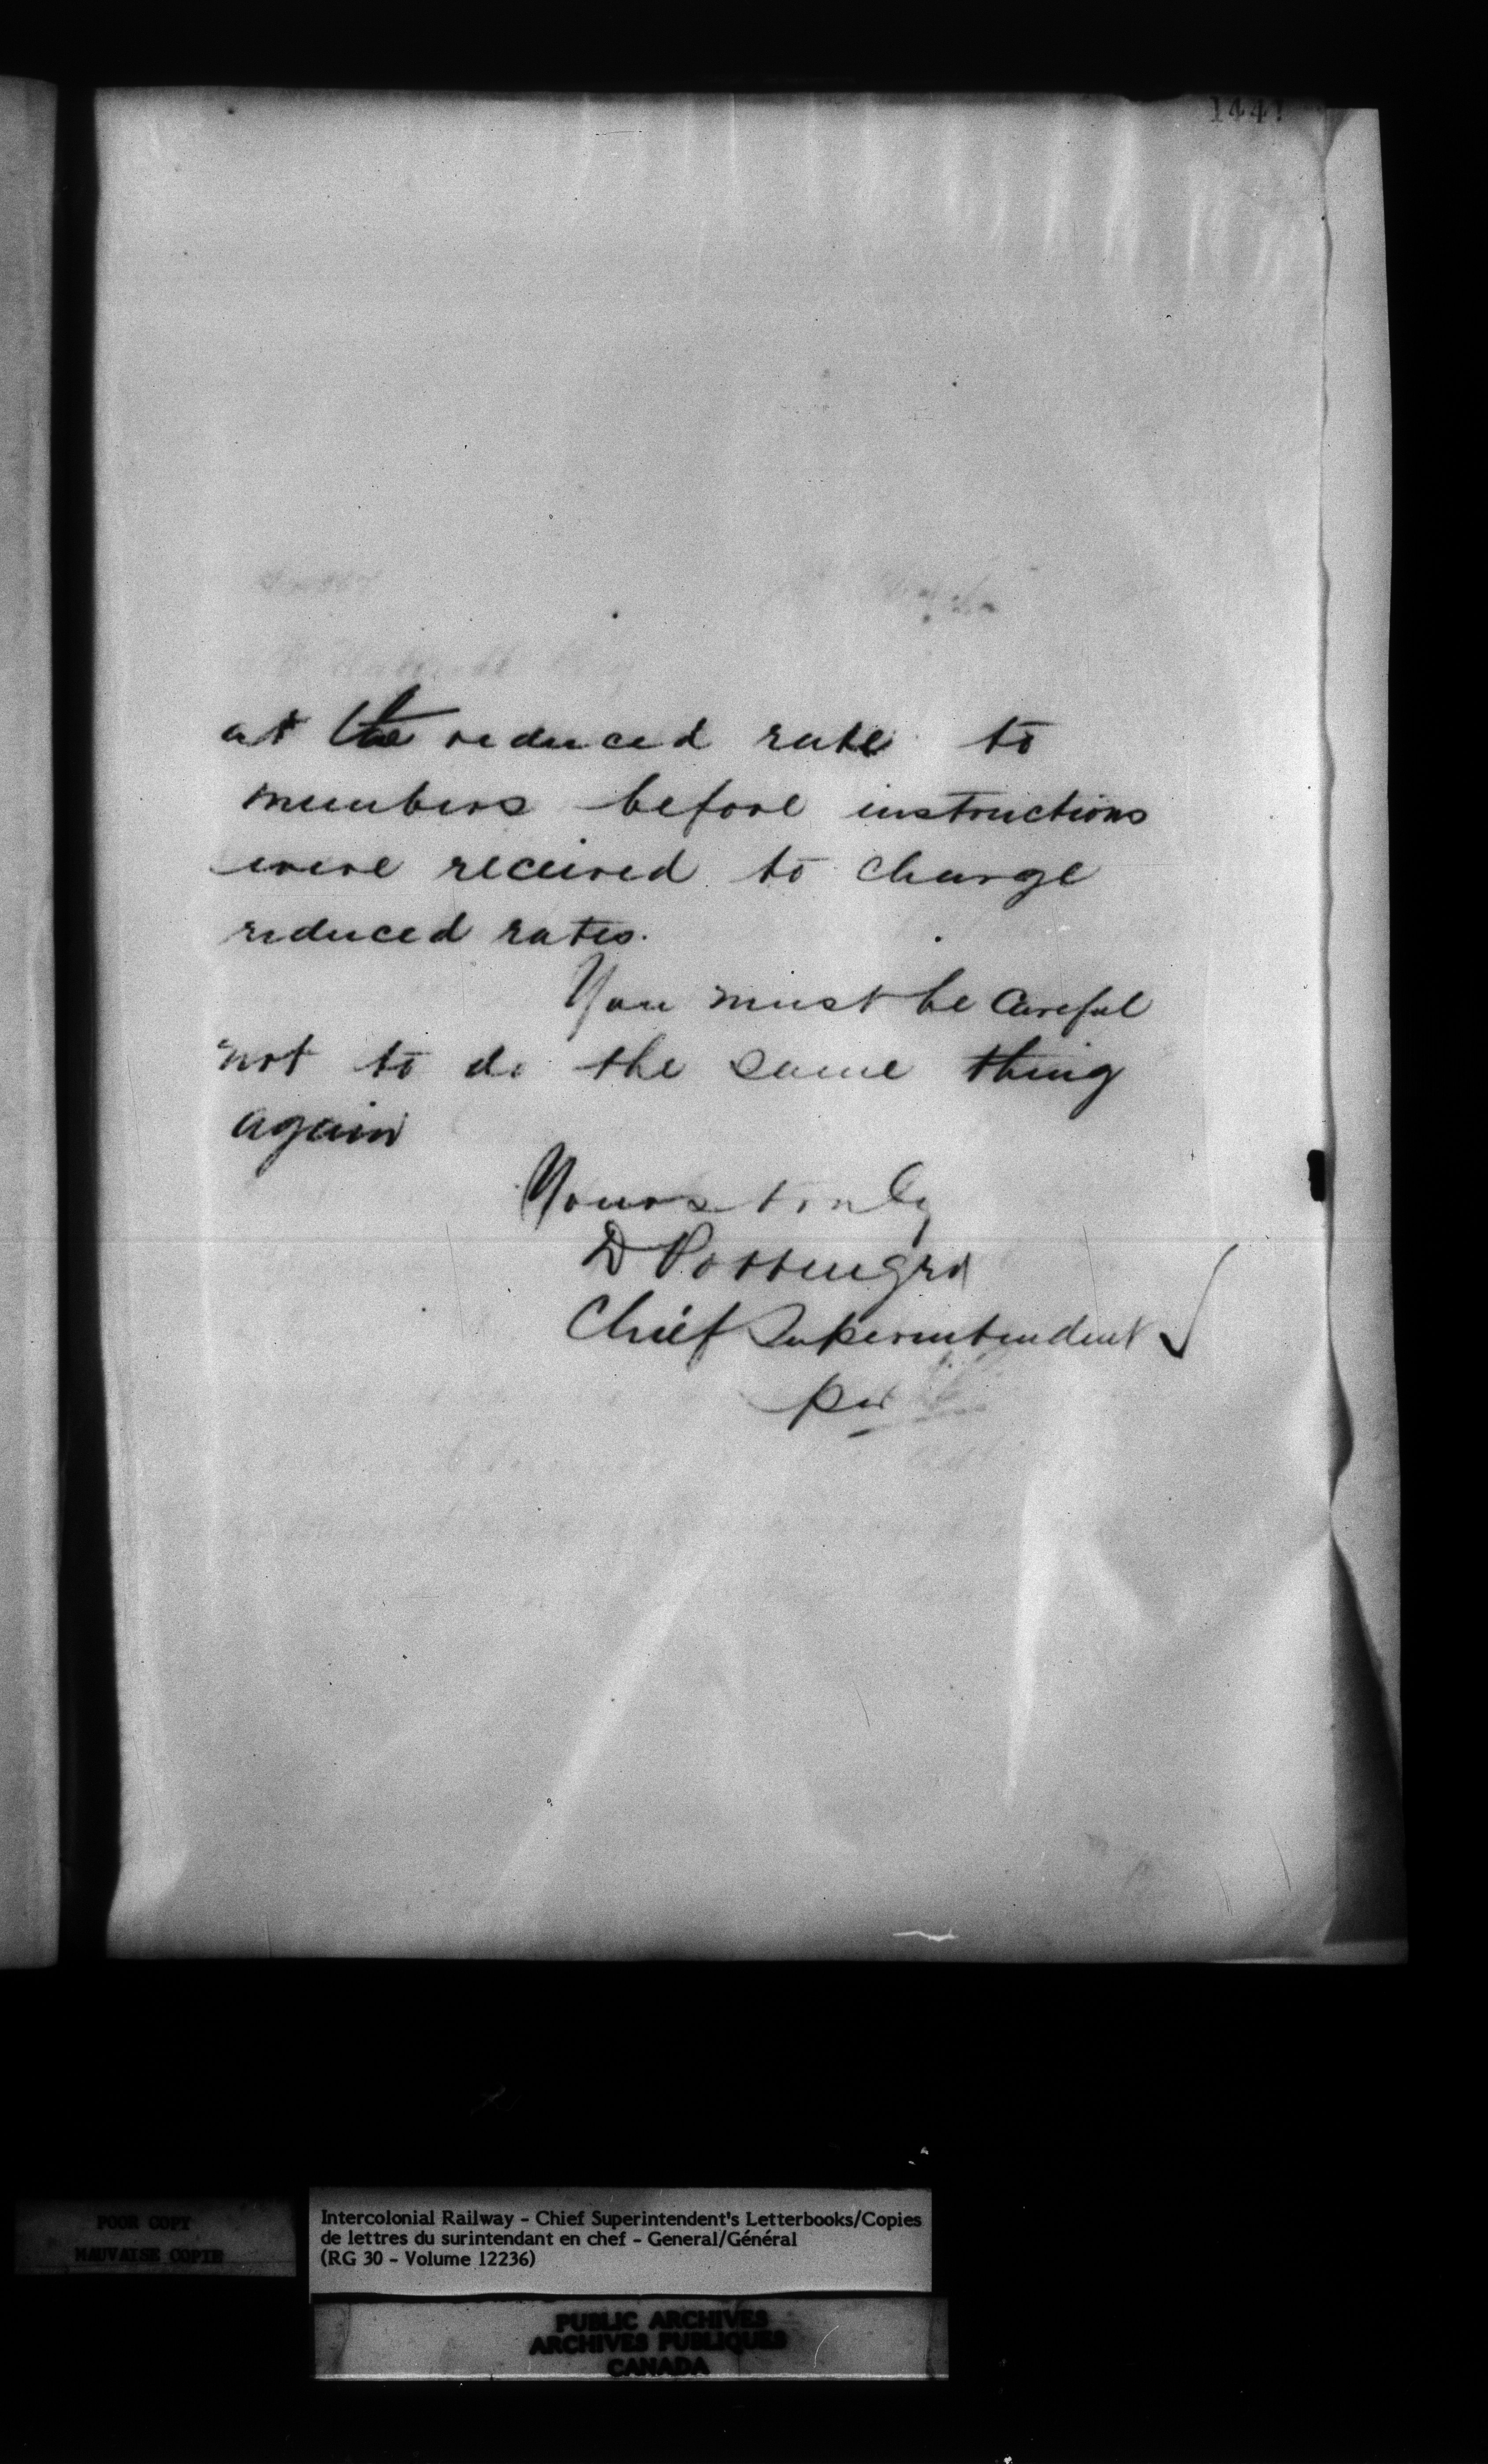 1441
at the reduced rate to
members before instructions
were received to charge
reduced rates.
You must be Careful
not to do the same thing
again
Yours truly
D Pottinger
Chief Superintendent
per
POOR COPY
MAUVAISE COPIE
Intercolonial Railway - Chief Superintendent's Letterbooks/Copies
de lettres du surintendant en chef - General/Général
(RG 30 - Volume 12236)
PUBLIC ARCHIVES
ARCHIVES PUBLIQUES
CANADA